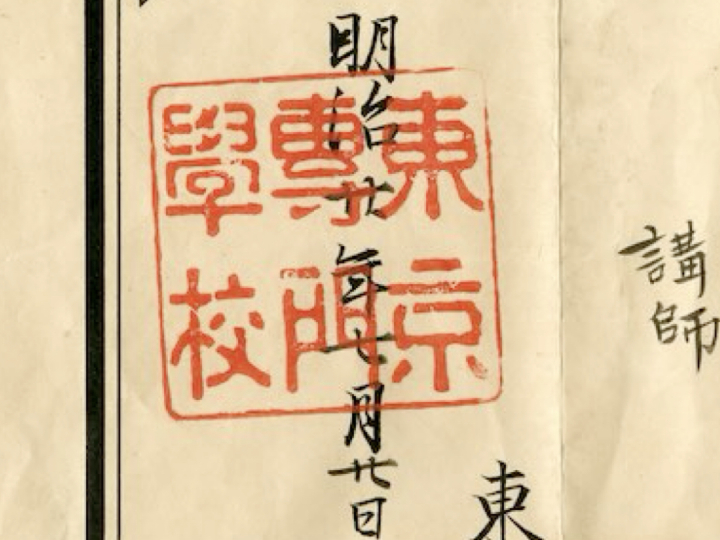 講師
東
東京
專門
學校
明治廿年七月廿日